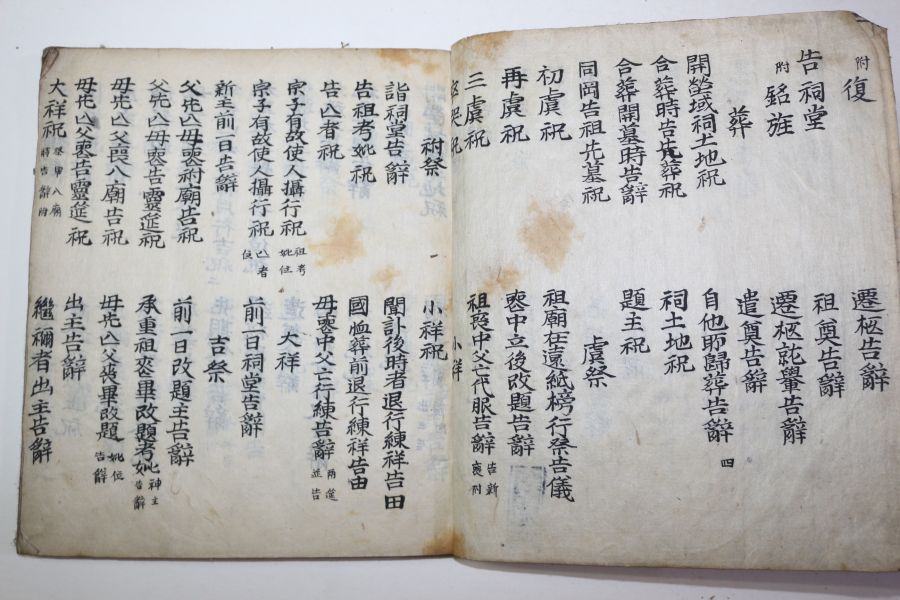 附 復
告祠堂
附 銘旌
葬
開塋域祠土地祝
合葬時告先葬祝
合葬開墓時告辭
同岡告祖先墓祝
初虞祝
再虞祝
三虞祝
卒哭祝
遷柩告辭
祖奠告辭
遷柩就轝告辭
遣奠告辭
自他所歸葬告辭 四
祠土地祝
題主祝
虞祭
祖廟在遠紙榜行祭告儀
喪中立後改題告辭
祖喪中父亡代服告辭 告新喪附
小祥
祔祭
詣祠堂告辭
告祖考妣祝
告亡者祝
宗子有故使人攝行祝 祖考妣位
宗子有故使人攝行祝 亡者位
新主前一日告辭
父先亡母喪祔廟告祝
父先亡母喪告靈筵祝
母先亡父喪入廟告祝
母先亡父喪告靈筵祝
大祥祝
小祥祝
聞訃後時者退行練祥告由
國恤葬前退行練祥告由
母喪中父亡行練告辭 兩筵並告
大祥
前一日祠堂告辭
吉祭
前一日改題主告辭
承重祖喪畢改題考妣神主告辭
母先亡父喪畢改題妣位告辭
出主告辭
繼禰者出主告辭